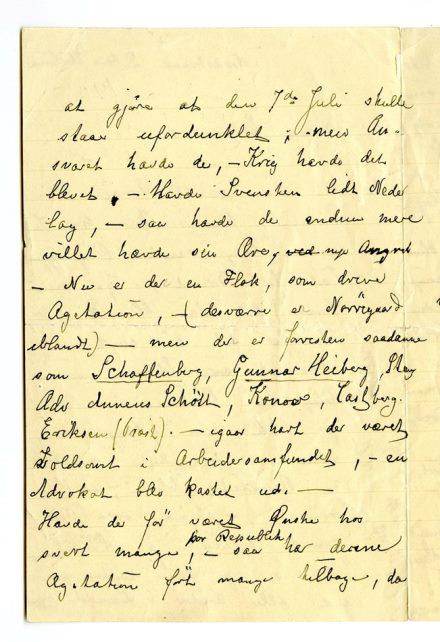 at gjøre at den 7de Juli skulle
staa ufordunklet; men An-
svaret havde de, – Krig havde det
blevet, – Havde Svensken lidt Neder
lag, – saa havde de endnu mere
villet hævde sin Ære, ved nye Angreb
– Nu er der en Flok, som driver
Agitation, – (desværre er Norregaard
iblandt) – men der er forresten saadanne
som Scharffenberg, Gunnar Heiberg,
Adv Schött, Konow, Castberg.
Eriksen (Præst). – igaar hart der været
Voldsomt i Arbeidersamfundet, – en
Advokat blev kastet ud. –
Havde der før været Ønske hos
for Republik
svært mange, – saa har denne
Agitation ført mange tilbage, da